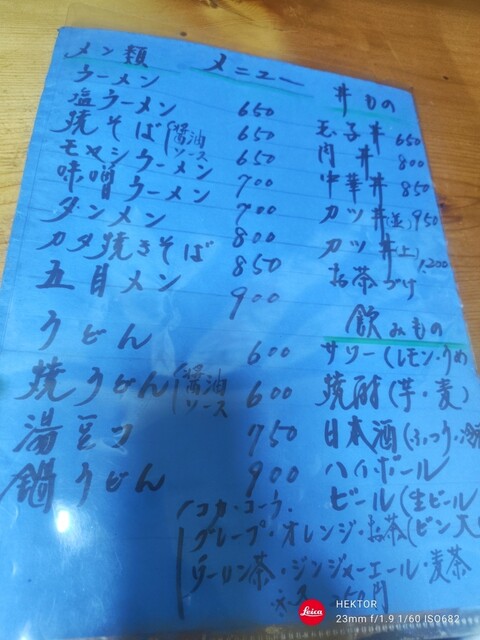 メニュー
メン類
ラーメン 650
塩ラーメン 650
焼そば(醤油 ソース 650
モヤシラーメン 700
味噌ラーメン 700
タンメン 800
カタ焼きそば 850
五目メン 900
うどん 600
焼うどん(醤油 ソース 600
湯豆フ 750
鍋うどん 900
丼もの
玉子丼 650
肉丼 800
中華丼 850
カツ丼(並) 950
カツ丼(上) 1,200
お茶づけ
飲みもの
サワー(レモン・うめ
焼酎(芋・麦)
日本酒(ふつう・冷
ハイボール
ビール(生ビール
コカ・コーラ
グレープ・オレンジ・お茶(ビン大
ウーロン茶・ジンジャーエール・麦茶
円
Leica
HEKTOR
23mm f/1.9 1/60 ISO682